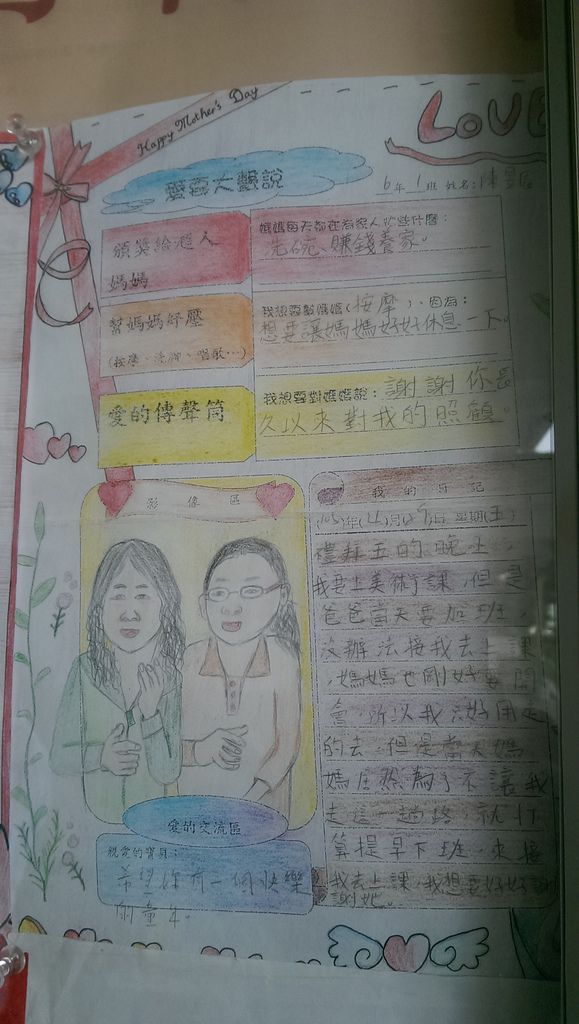 Happy Mother's Day
LOVE
愛要大聲說
6年1班 姓名:陳
頒獎給超人
媽媽
媽媽每天都在為家人忙些什麼:
洗碗 賺錢養家。
幫媽媽紓壓
(按摩、洗腳、唱歌…)
我想要幫媽媽(按摩),因為:
想要讓媽媽好好休息一下。
愛的傳聲筒
我想要對媽媽說:謝謝你長
久以來對我的照顧。
影像區
我的日記
105年(4)月(9)日 星期(五)
禮拜五的晚上,
我要上美術課,但是
爸爸當天要加班,
沒辦法接我去上課
,媽媽也剛好要開
會,所以我只好用走
的去,但是當天媽
媽居然為了不讓我
走這一趟路,就打
算提早下班,來接
我去上課,我想要好好謝
謝她。
愛的交流區
親愛的寶貝:
希望妳有一個快樂
的童年。